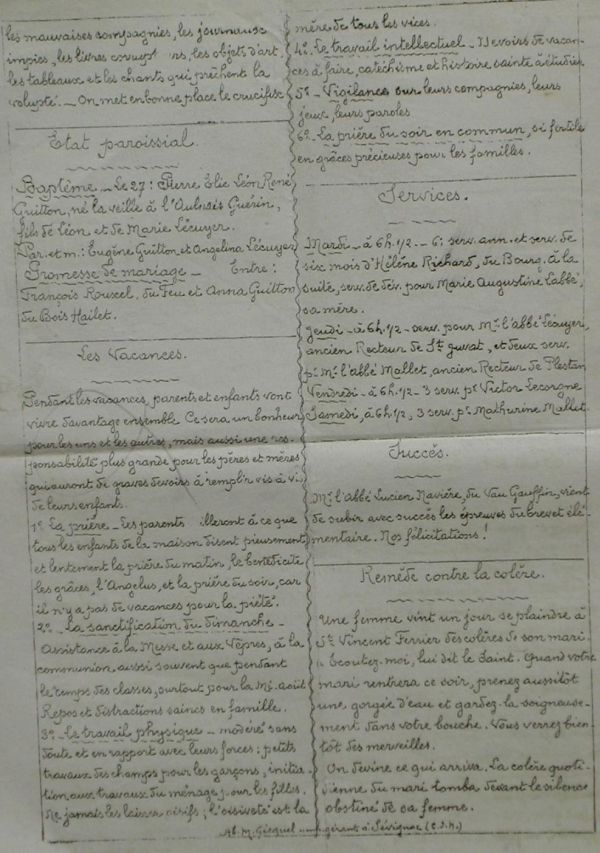 les mauvaises compagnies, les journaux
impies, les livres corrupt rs, les objets d'art
les tableaux et les chants qui prêchent la
volupté. _ On met en bonne place le crucifix
Etat paroissial.
Baptême _ Le 27: Pierre Elie Léon René
Guitton, né la veille à l'Aubois Guérin,
fils de Léon et de Marie Lécuyer.
Par. et m.: Eugène Guitton et Angelina Lécuyer
Promesse de mariage _ Entre:
François Rouxel, du Feu et Anna Guitton
du Bois Hailet.
Les Vacances.
Pendant les vacances, parents et enfants vont
vivre davantage ensemble. Ce sera un bonheur
pour les uns et les autres, mais aussi une res-
ponsabilité plus grande pour les pères et mères
qui auront de graves devoirs à remplir vis à vis
de leurs enfants.
1º La prière _ Les parents illeront à ce que
tous les enfants de la maison disent pieusement
et lentement la prière du matin, le benedicite
les grâces, l'Angelus, et la prière du soir, car
il n'y a pas de vacances pour la piété.
2º _ La sanctification du dimanche _
Assistance à la Messe et aux Vêpres, à la
communion, aussi souvent que pendant
le temps des classes, surtout pour la Mi-août
Repos et distractions saines en famille.
3º _ Le travail physique _ modéré sans
doute et en rapport avec leurs forces: petits
travaux des champs pour les garçons, initia
tion aux travaux du ménage pour les filles.
Ne jamais les laisser oisifs; l'oisiveté est la
mère de tous les vices.
4º Le travail intellectuel _ Devoirs de vacan-
ces à faire, catéchisme et histoire sainte à étudier
5º _ Vigilance sur leurs compagnies, leurs
jeux, leurs paroles
6º _ La prière du soir en commun, si fertile
en grâces précieuses pour les familles.
Services.
Mardi _ à 6h.1/2 _ 6: serv. ann. et serv. de
six mois d'Hélène Richard, du Bourg. à la
suite, serv. de dév. pour Marie Augustine Labbé,
sa mère.
Jeudi _ à 6h.1/2 _ serv. pour Mr. l'abbé Lécuyer,
ancien Recteur de St Juvat, et deux serv.
pr Mr. l'abbé Mallet, ancien Recteur de Plestan
Vendredi _ à 6h.1/2 _ 3 serv. pr Victor Lecorgne
Samedi, à 6h.1/2, 3 serv. pr Mathurine Mallet
Succès.
Mr. l'abbé Lucien Navière, du Vau Gauffin, vient
de subir avec succès les épreuves du brevet élé-
mentaire. Nos félicitations!
Remède contre la colère.
Une femme vint un jour se plaindre à
St Vincent Ferrier des colères de son mari
_ Ecoutez-moi, lui dit le Saint. Quand votre
mari rentrera ce soir, prenez aussitôt
une gorgée d'eau et gardez-la soigneuse-
ment dans votre bouche. Vous verrez bien-
tôt des merveilles.
On devine ce qui arriva. La colère quoti-
dienne du mari tomba devant le silence
obstiné de sa femme.
Ab. M. Gicquel gérant à Sévignac (C.d.N.)